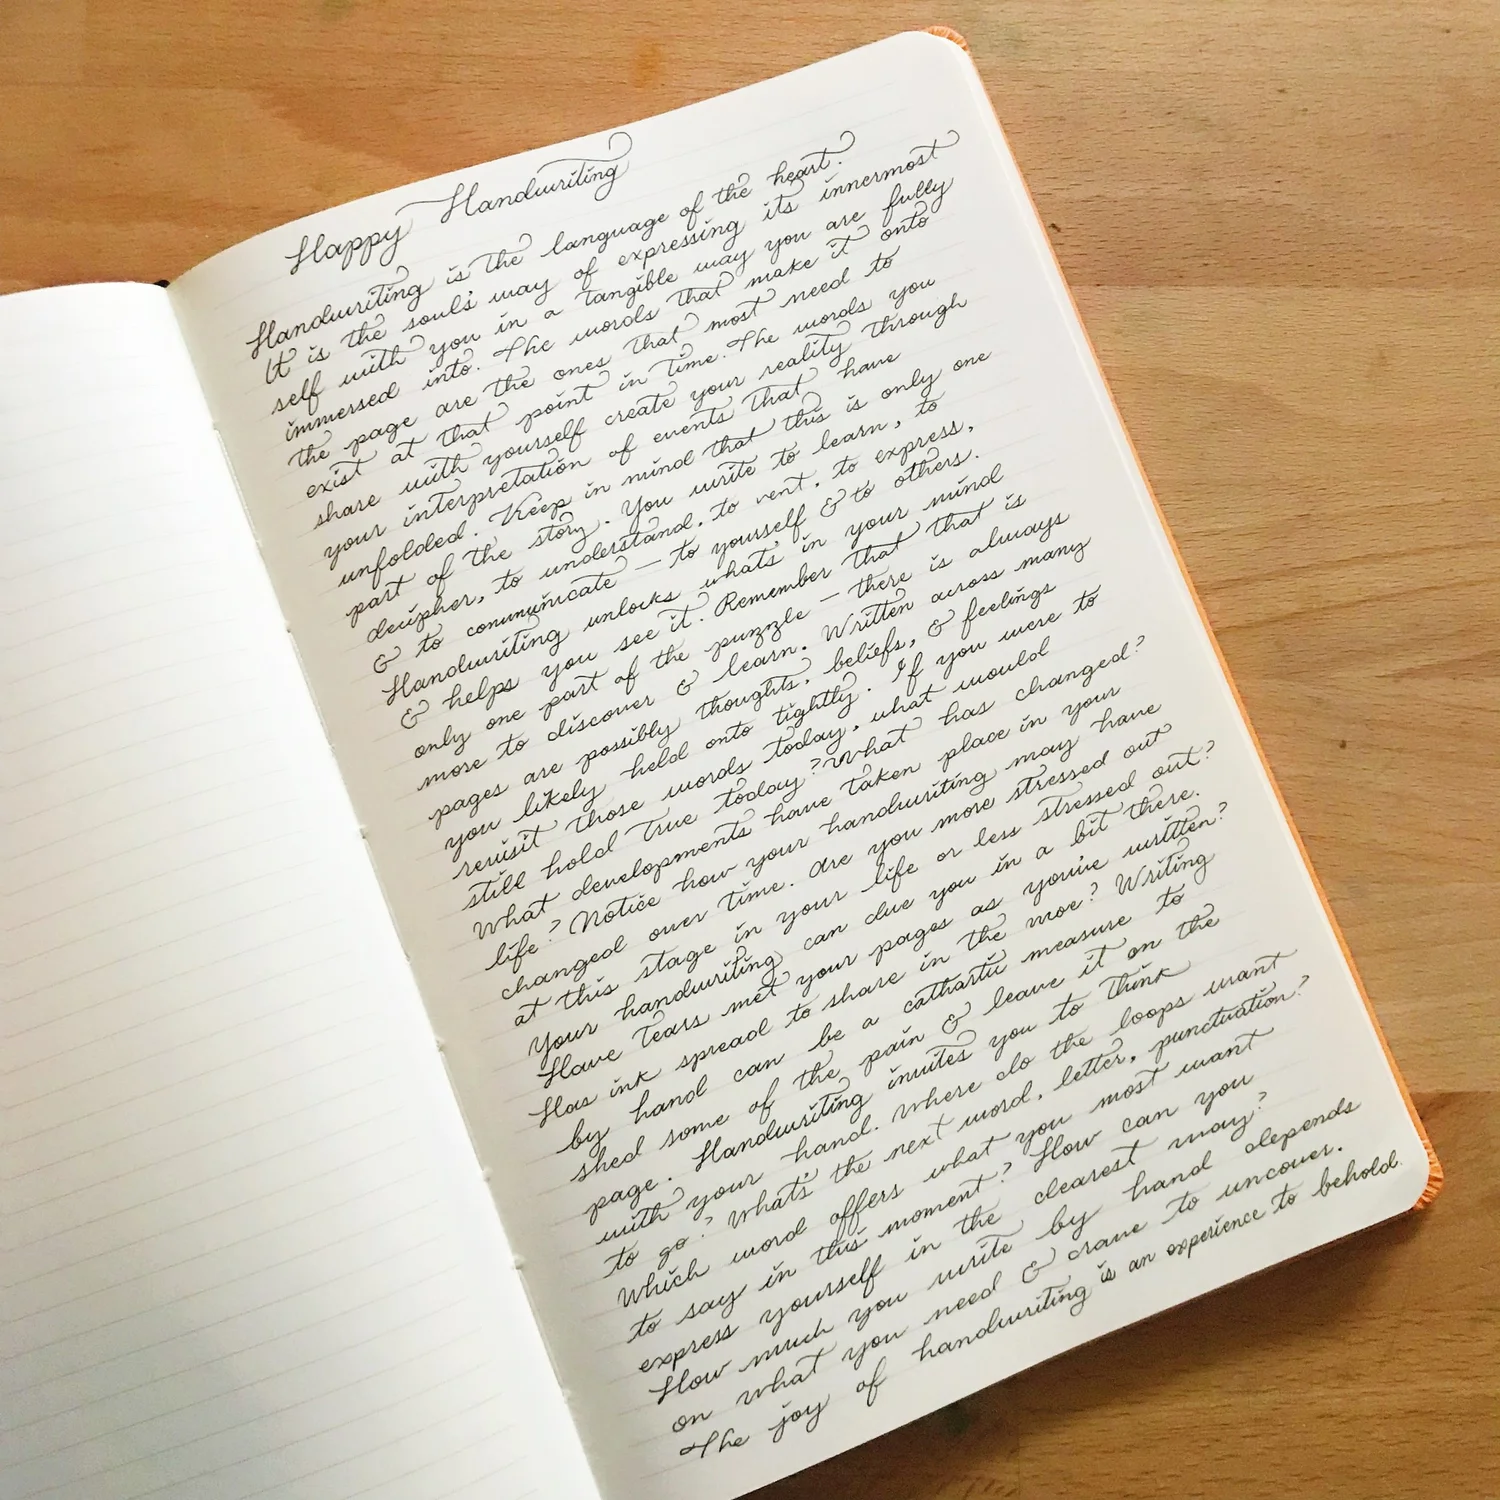 Happy Handwriting
Handwriting is the language of the heart.
It is the soul's way of expressing its innermost
self with you in a tangible way you are fully
immersed into. The words that make it onto
the page are the ones that most need to
exist at that point in time. The words you
share with yourself create your reality through
your interpretation of events that have
unfolded. Keep in mind that this is only one
part of the story. You write to learn, to
decipher, to understand, to vent, to express,
& to communicate — to yourself & to others.
Handwriting unlocks whats' in your mind
& helps you see it. Remember that that is
only one part of the puzzle — there is always
more to discover & learn. Written across many
pages are possibly thoughts, beliefs, & feelings
you likely held onto tightly. If you were to
revisit those words today, what would
still hold true today? What has changed?
What developments have taken place in your
life? Notice how your handwriting may have
changed over time. Are you more stressed out
at this stage in your life or less stressed out?
Your handwriting can clue you in a bit there.
Have tears met your pages as you've written?
Has ink spread to share in the woe? Writing
by hand can be a cathartic measure to
shed some of the pain & leave it on the
page. Handwriting invites you to think
with your hand. Where do the loops want
to go? What's the next word, letter, punctuation?
Which word offers what you most want
to say in this moment? How can you
express yourself in the clearest way?
How much you write by hand depends
on what you need & crave to uncover.
The joy of handwriting is an experience to behold.